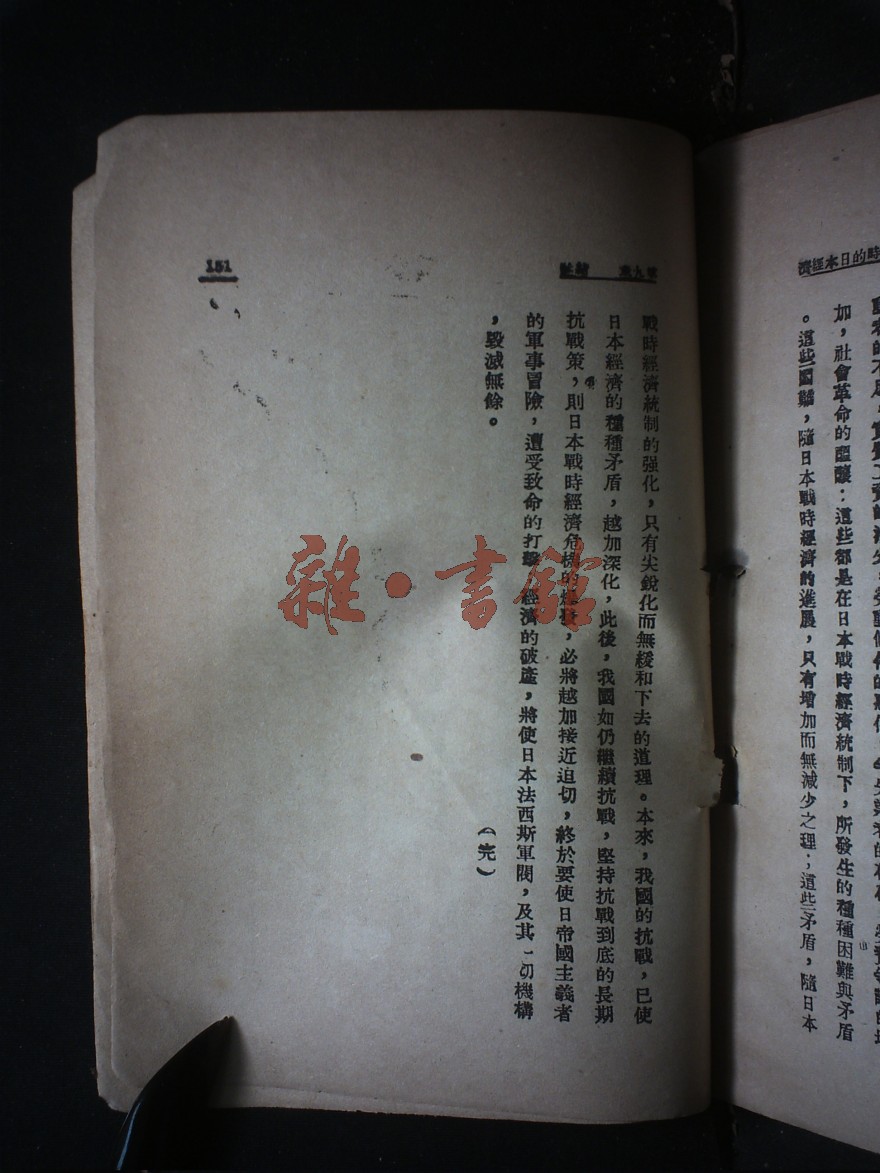 時的日本經濟
加，社會革命的醞釀：這些都是在日本戰時經濟統制下，所發生的種種困難與矛盾
。這些困難，隨日本戰時經濟的進展，只有增加而無減少之理；這些矛盾，隨日本
第九章 結論
151
戰時經濟統制的强化，只有尖銳化而無緩和下去的道理。本來，我國的抗戰，已使
日本經濟的種種矛盾，越加深化，此後，我國如仍繼續抗戰，堅持抗戰到底的長期
抗戰策，則日本戰時經濟危機的爆發，必將越加接近迫切，終於要使日帝國主義者
的軍事冒險，遭受致命的打擊，經濟的破產，將使日本法西斯軍閥，及其一切機構
，毀滅無餘。
（完）
雜·書館